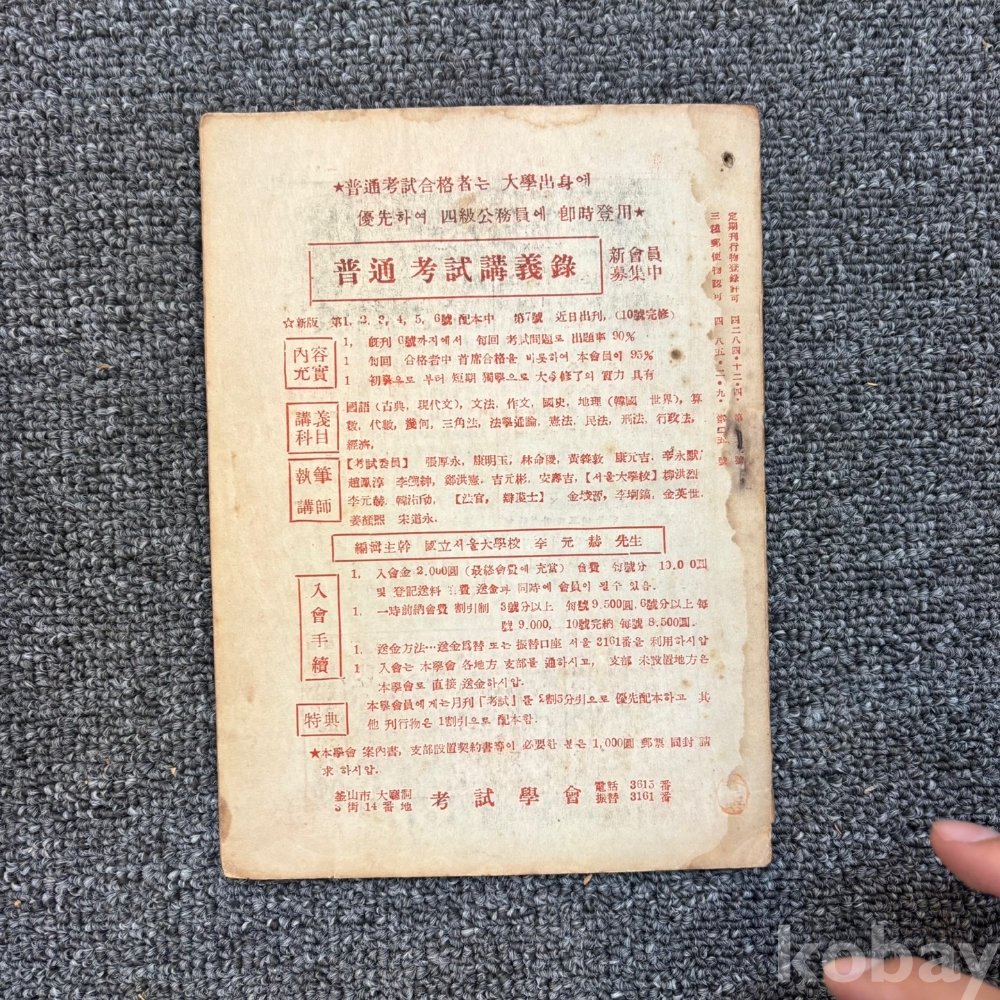 ★普通考試合格者는 大學出身에
優先하여 四級公務員에 卽時登用★
普通 考試講義錄
新會員
募集中
☆新版 第1, 2, 3, 4, 5, 6號 配本中 第7號 近日出刊, (10號完修)
內容
充實
1. 旣刊 6號까지에서 每回 考試問題로 出題率 90%
1 每回 合格者中 首席合格을 비롯하여 本會員이 95%
1 初學으로 부터 短期 獨學으로 大學修了의 實力 具有
講義
科目
國語(古典, 現代文), 文法, 作文, 國史, 地理(韓國 世界), 算
數, 代數, 幾何, 三角法, 法學通論, 憲法, 民法, 刑法, 行政法,
經濟,
執筆
講師
【考試委員】 張厚永, 康明玉, 林命 黃 康元吉, 辛永
趙 淳 李 鄭洪 吉元彬, 安 吉, 【서울大學校】 柳洪烈
李元赫, 韓 【法官, 辯護士】 金 李 金英世,
姜 熙 宋道永.
編輯主幹 國立서울大學校 李元赫 先生
入會手續
1. 入會金 2,000圓 (最終會費에 充當) 會費 每號分 10.000圓
및 登記送料 會費 送金과 同時에 會員이 될수 있음.
1. 一時前納會費 割引制 3號分以上 每號 9,500圓, 6號分以上 每
號 9.000, 10號完納 每號 8.500圓.
1. 送金方法…送金爲替 또는 振替口座 서울 3161番을 利用하시압
1 入會는 本學會 各地方 支部를 通하시고, 支部 未設置地方은
本學會로 直接 送金하시압.
特典
本學會員에게는 月刊「考試」를 2割5分引으로 優先配本하고 其
他 刊行物은 1割引으로 配本함.
★本學會 案內書, 支部設置契約書等이 必要한 분은 1,000圓 郵票 同封 請
求 하시압.
釜山市 大廳洞
3街 14番地
考試學會
電話 3615番
振替 3161番
定期刊行物登錄許可 四二八四・十二・四・第 1 號
三種郵便物認可 四二八五・二・九・第 號
kobay